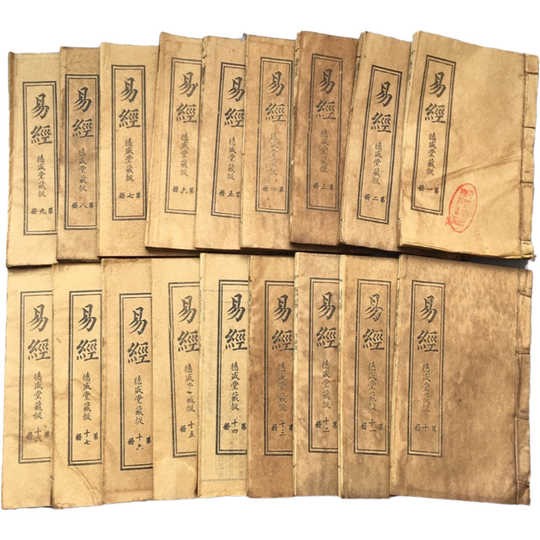 易經
德成堂藏板
第一冊
易經
德成堂藏板
第二冊
易經
德成堂藏板
第三冊
易經
德成堂藏板
第四冊
易經
德成堂藏板
第五冊
易經
德成堂藏板
第六冊
易經
德成堂藏板
第七冊
易經
德成堂藏板
第八冊
易經
德成堂藏板
第九冊
易經
德成堂藏板
第十冊
易經
德成堂藏板
第十一冊
易經
德成堂藏板
第十二冊
易經
德成堂藏板
第十三冊
易經
德成堂藏板
第十四冊
易經
德成堂藏板
第十五冊
易經
德成堂藏板
第十六冊
易經
德成堂藏板
第十七冊
易經
德成堂藏板
第十八冊